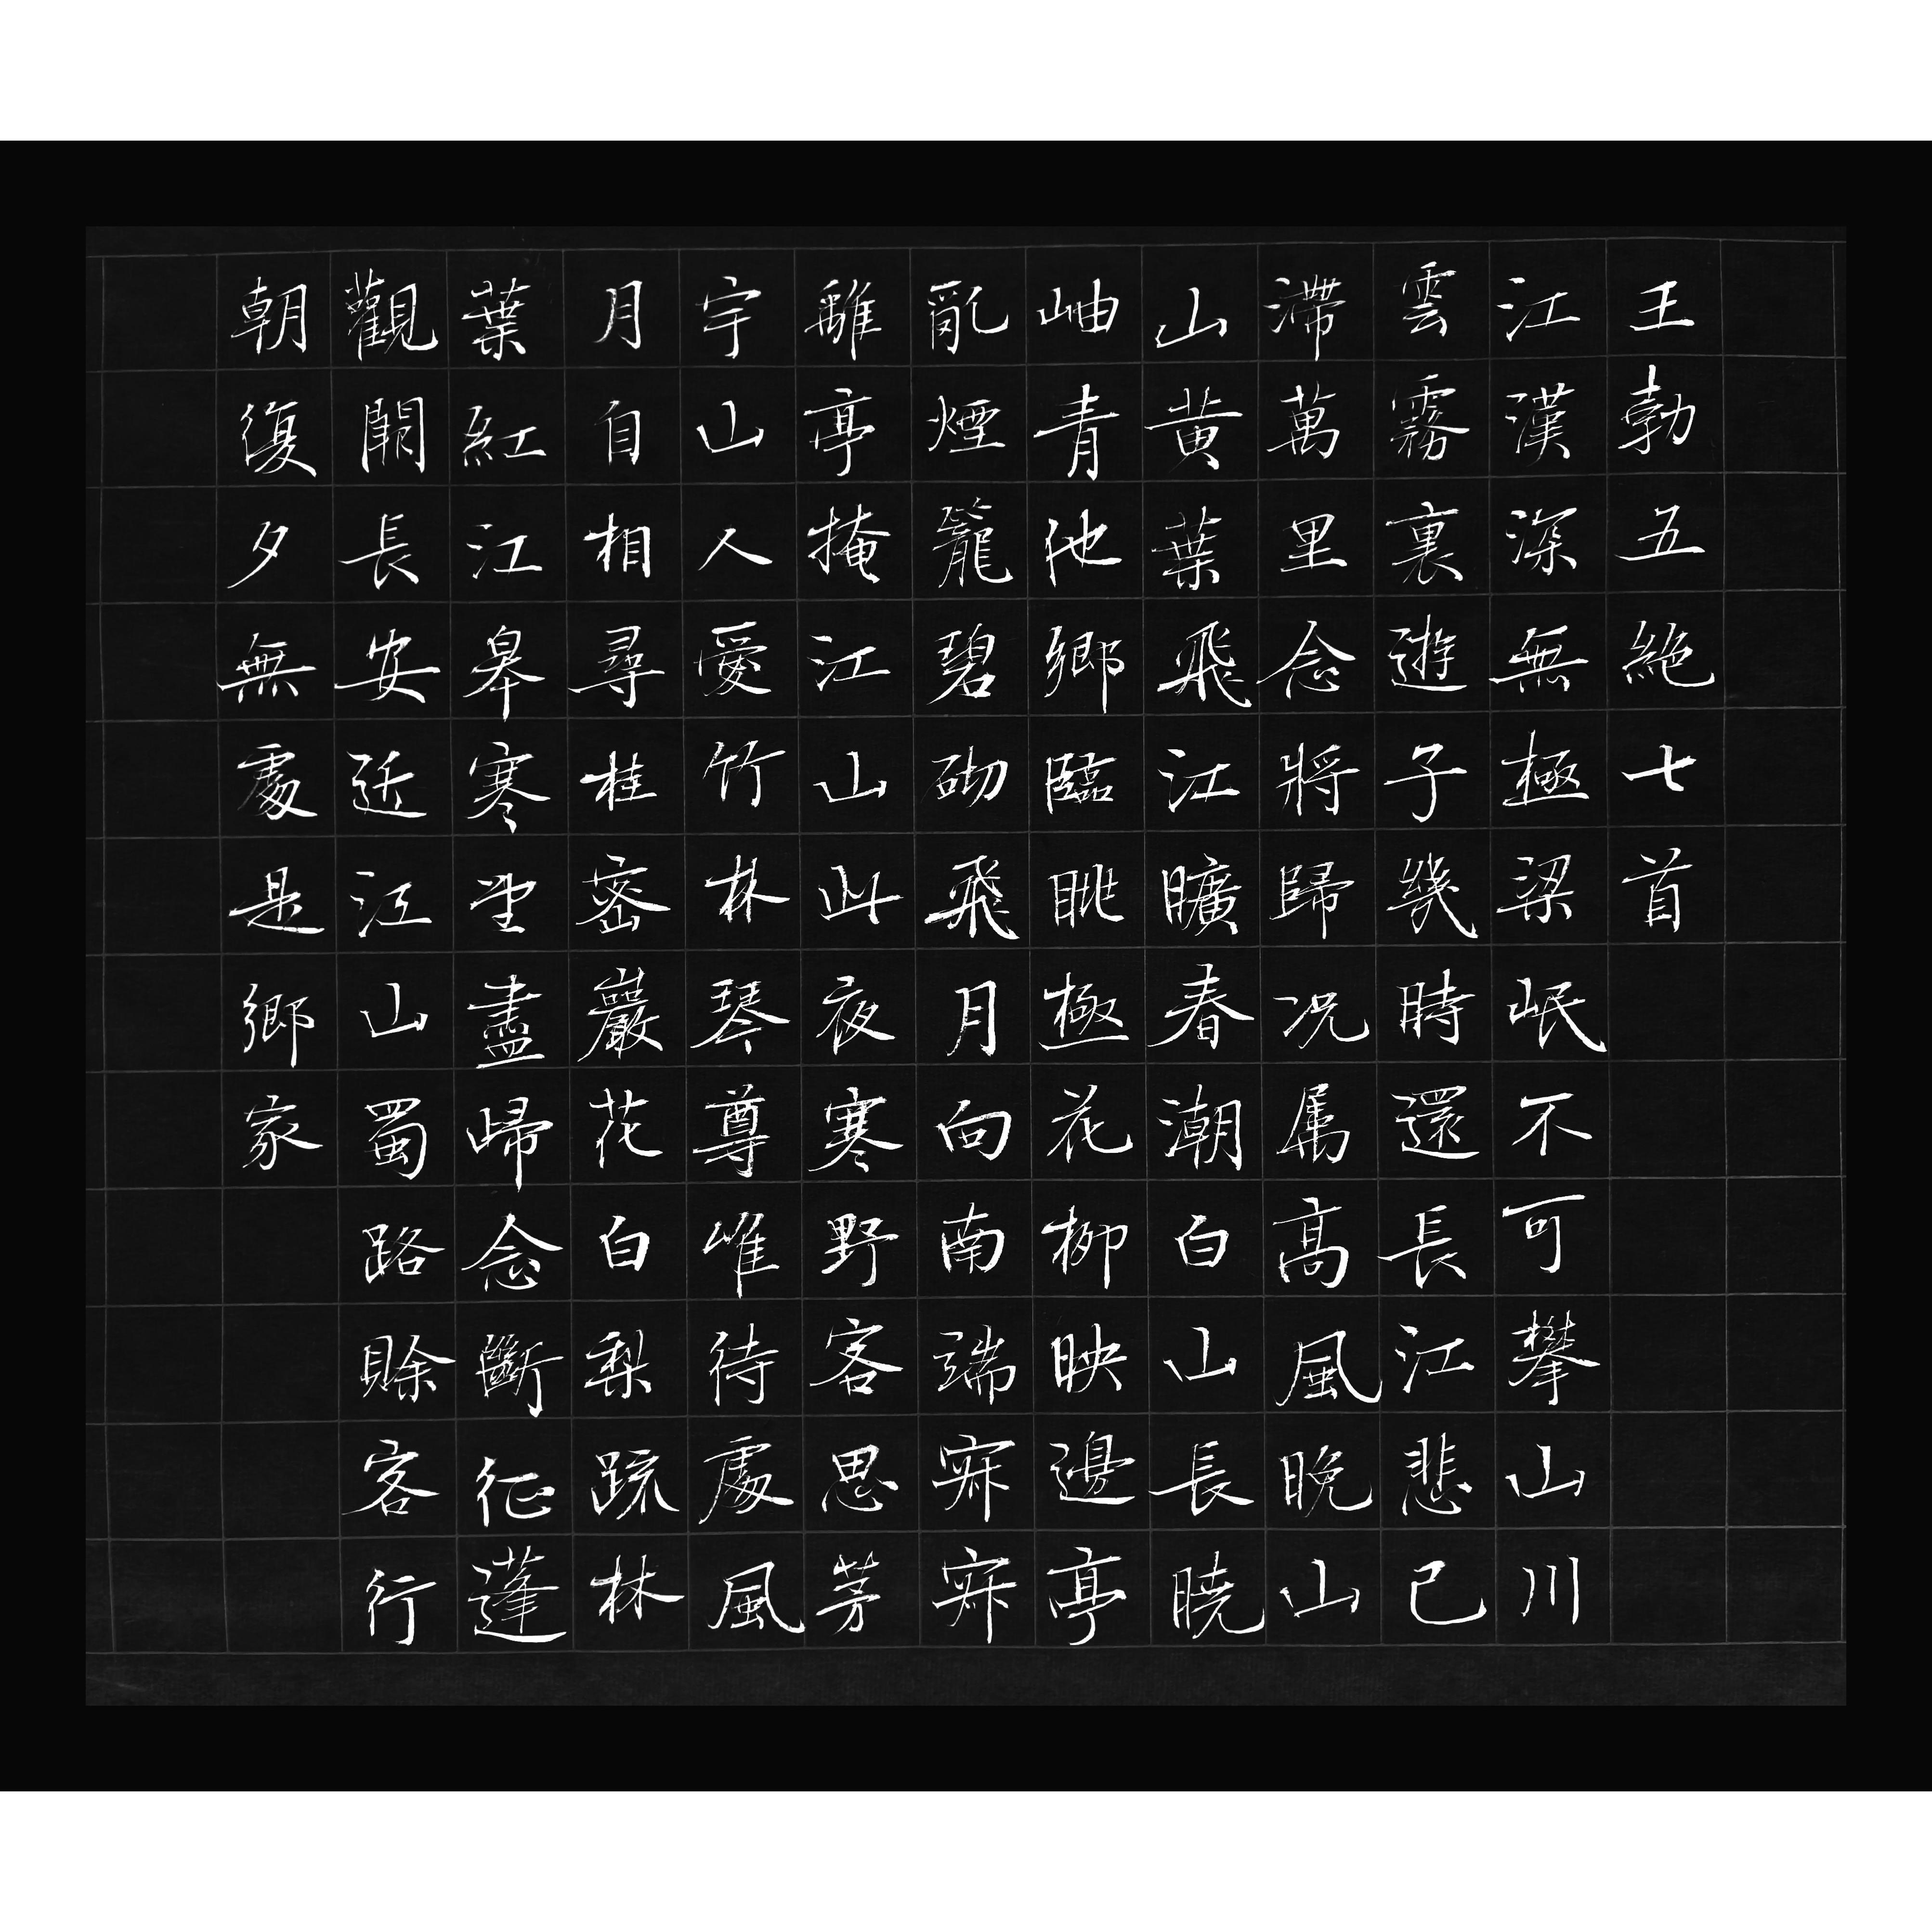 王勃五絶七首
江漢深無極梁岷不可攀山川
雲霧裏遊子幾時還長江悲已
滯萬里念將歸况属高風晚山
山黄葉飛江曠春潮白山長曉
岫青他鄉臨眺極花柳映邊亭
亂煙籠碧砌飛月向南端寂寂
離亭掩江山此夜寒野客思茅
宇山人愛竹林琴尊唯待處風
月自相尋桂密巖花白梨疏林
葉紅江皋寒望盡歸念斷征蓬
觀闕長安近江山蜀路賒客行
朝復夕無處是鄉家